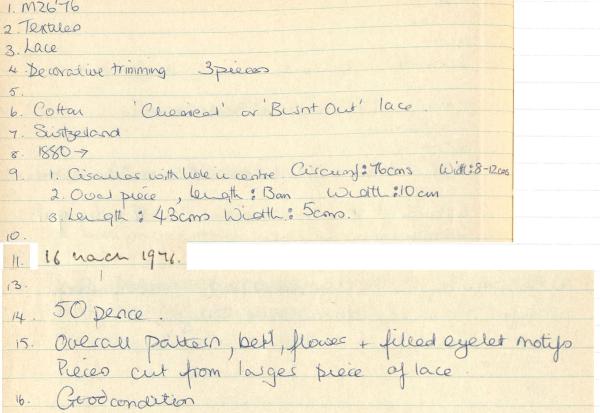 1. M26'76
2. Textiles
3. Lace
4. Decorative trimming 3 pieces
5.
6. Cotton 'Chemical' or 'Burnt Out' lace.
7. Switzerland
8. 1880→
9. 1. Circular with hole in centre. Circumf: 76cms Width: 8-12cms
2. Oval piece, length: Width: 10cm
3. Length: 43cms Width: 5cms.
10.
11. 16 March 1976.
13.
14. 50 pence.
15. Overall pattern, bell, flower + filled eyelet motifs
Pieces cut from larger piece of lace.
16. Good condition